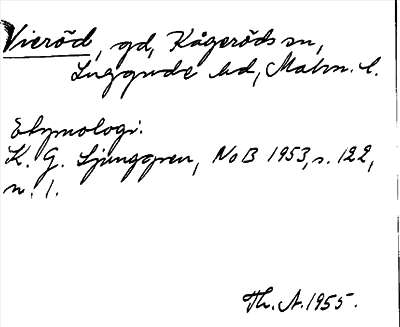 Vieröd, gd, Kågeröds sn,
Luggude hd, Malm. l.
Etymologi:
K. G. Ljunggren, NoB 1953, s. 122,
n. 1.
Th. A. 1955.